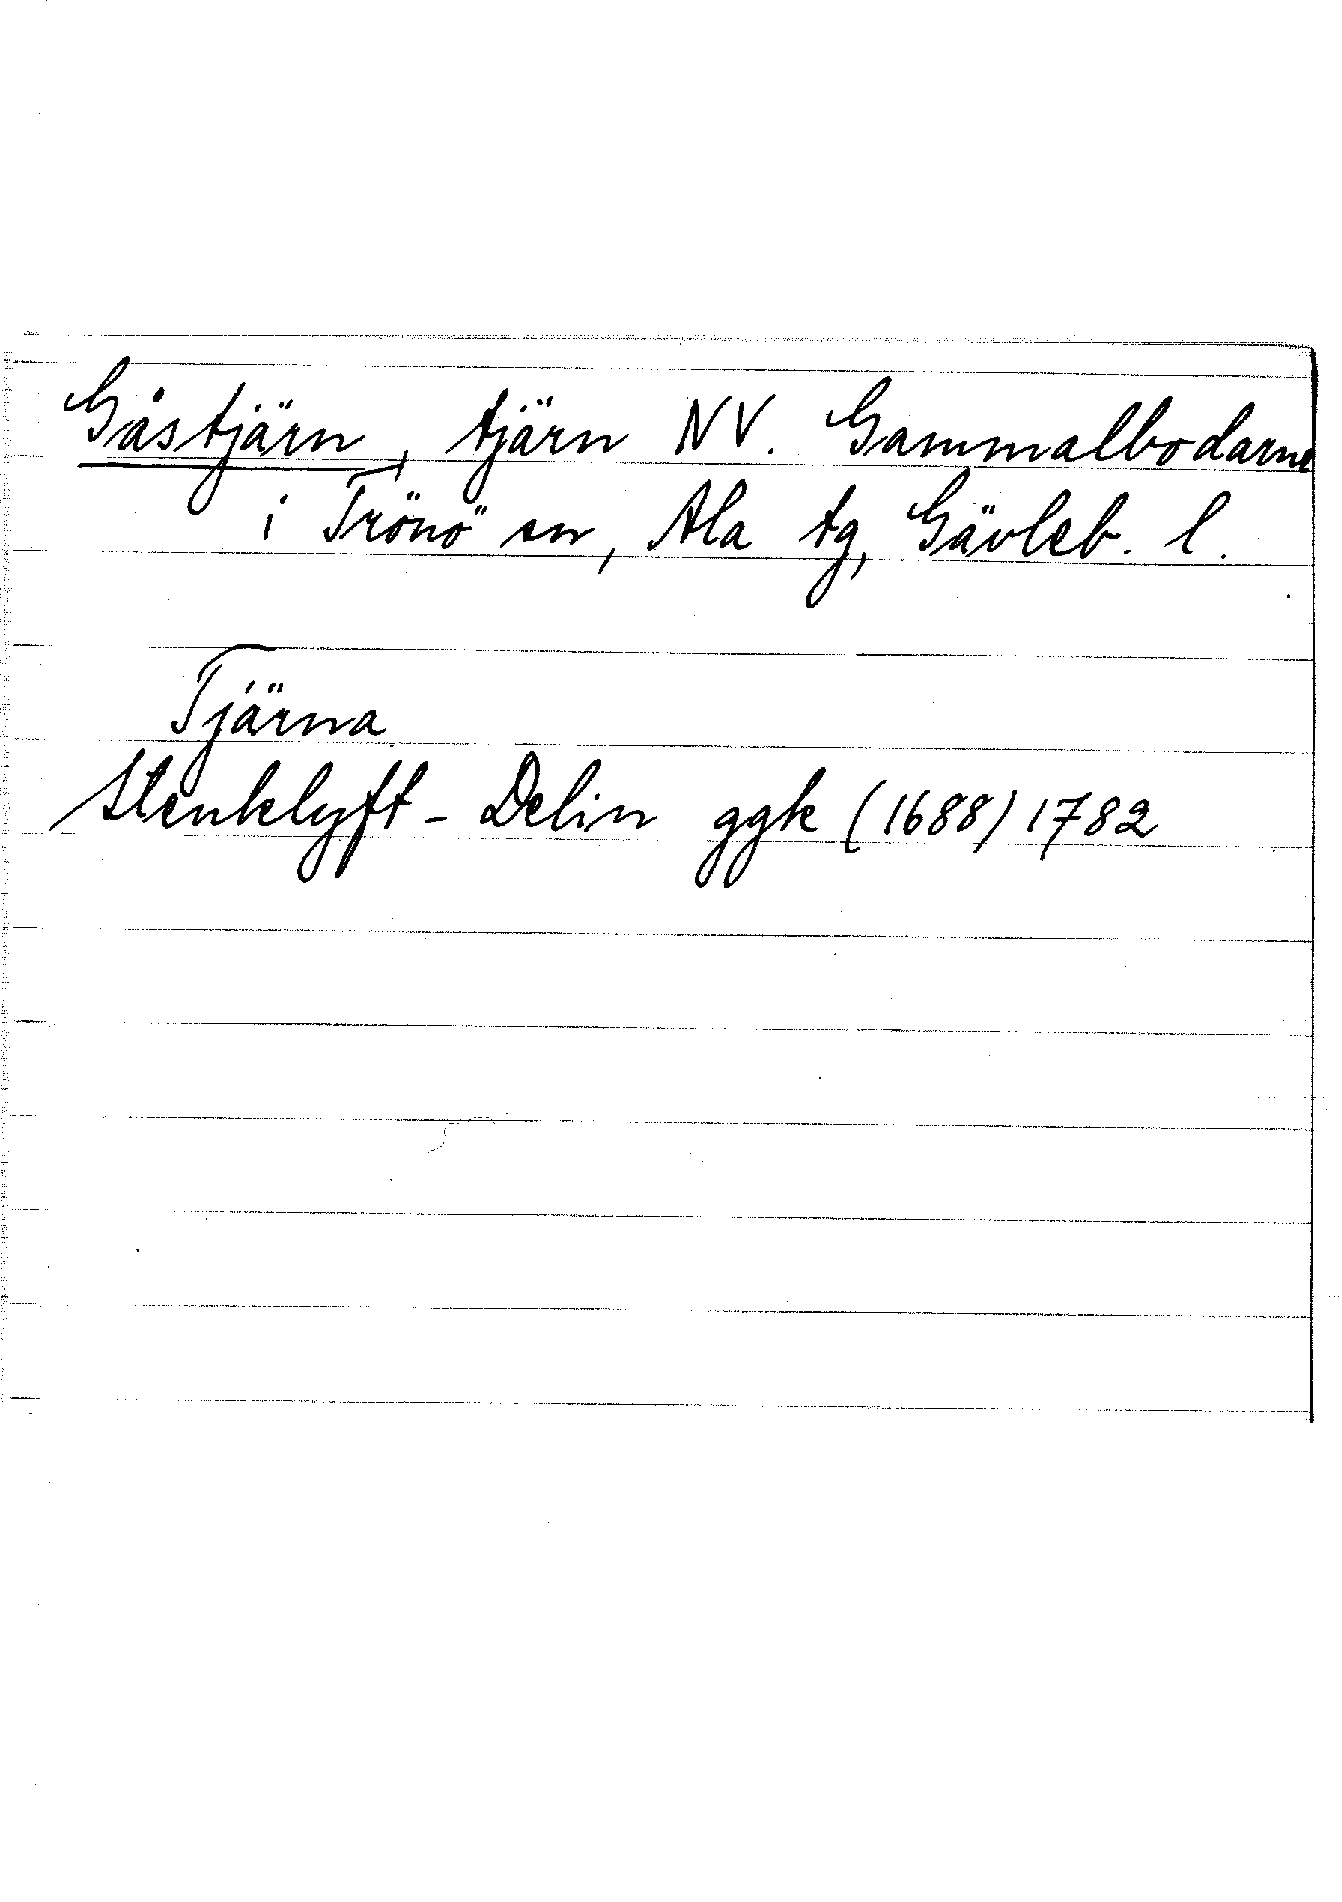 Gåstjärn, tjärn NV. Gammalbodarne
i Trönö sn, Ala tg, Gävleb. l.
Tjärna
Stenklyft - Delin ggk (1688) 1782